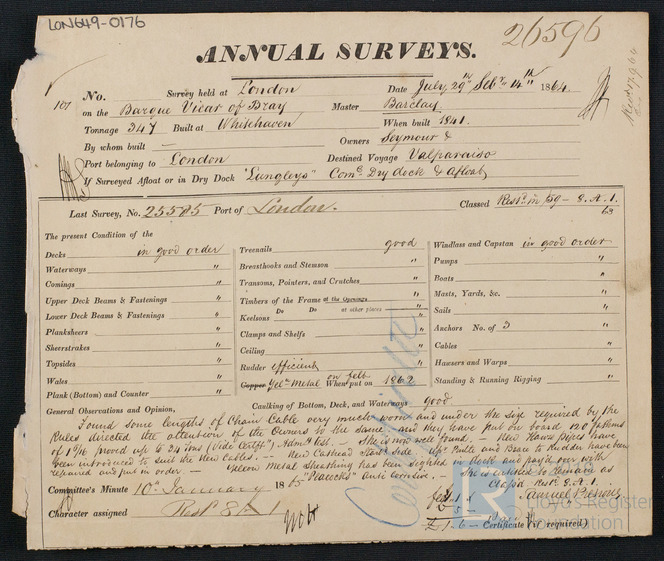 LON649-0176
26596
ANNUAL SURVEYS.
No. Survey held at London Date July, 29th Sepr. 14th 1864
107 on the Barque Vicar of Bray Master Barclay
Tonnage 347 Built at Whitehaven When built 1841.
By whom built — Owners Seymour &
Port belonging to London Destined Voyage Valparaiso
If Surveyed Afloat or in Dry Dock "Lungleys" Comc. Dry dock & Afloat
Last Survey, No. 25505 Port of London. Classed Restd. in 59 - 8. A. 1.
63
The present Condition of the
Decks in good order
Waterways "
Comings "
Upper Deck Beams & Fastenings "
Lower Deck Beams & Fastenings "
Planksheers "
Sheerstrakes "
Topsides "
Wales "
Plank (Bottom) and Counter "
Treenails good
Breasthooks and Stemson "
Transoms, Pointers, and Crutches "
Timbers of the Frame at the Openings "
Do Do at other places "
Keelsons "
Clamps and Shelfs "
Ceiling "
Rudder efficient
Copper Yelw. Metal on felt When put on 1862
Windlass and Capstan in good order
Pumps "
Boats "
Masts, Yards, &c. "
Sails "
Anchors No. of 3 "
Cables "
Hawsers and Warps "
Standing & Running Rigging "
Caulking of Bottom, Deck, and Waterways good
General Observations and Opinion,
Found some lengths of Chain Cable very much worn and under the size required by the
Rules directed the attention of the Owners to the same and they have put on board 120 fathoms
of 1 5/16 proved up to 34 tons (Vide Certift.) Admty. Test. - She is now well found. - New Hawse Pipes have
been introduced to suit the New Cables. - New Cathead Starbd. side. - Pintle and Brace to Rudder have been
repaired and put in order. - Yellow Metal Sheathing has been sighted in dock and pay'd over with
"Peacocks" Anti Corrosive. - She is entitled to remain as
Class'd Restd. 8. A. 1.
Samuel Pretious
Committee's Minute 10th January 1865
Character assigned Restd 8 A 1
£1 - 6 - Certificate (if required)
Certificate
Lloyd's Register
Foundation